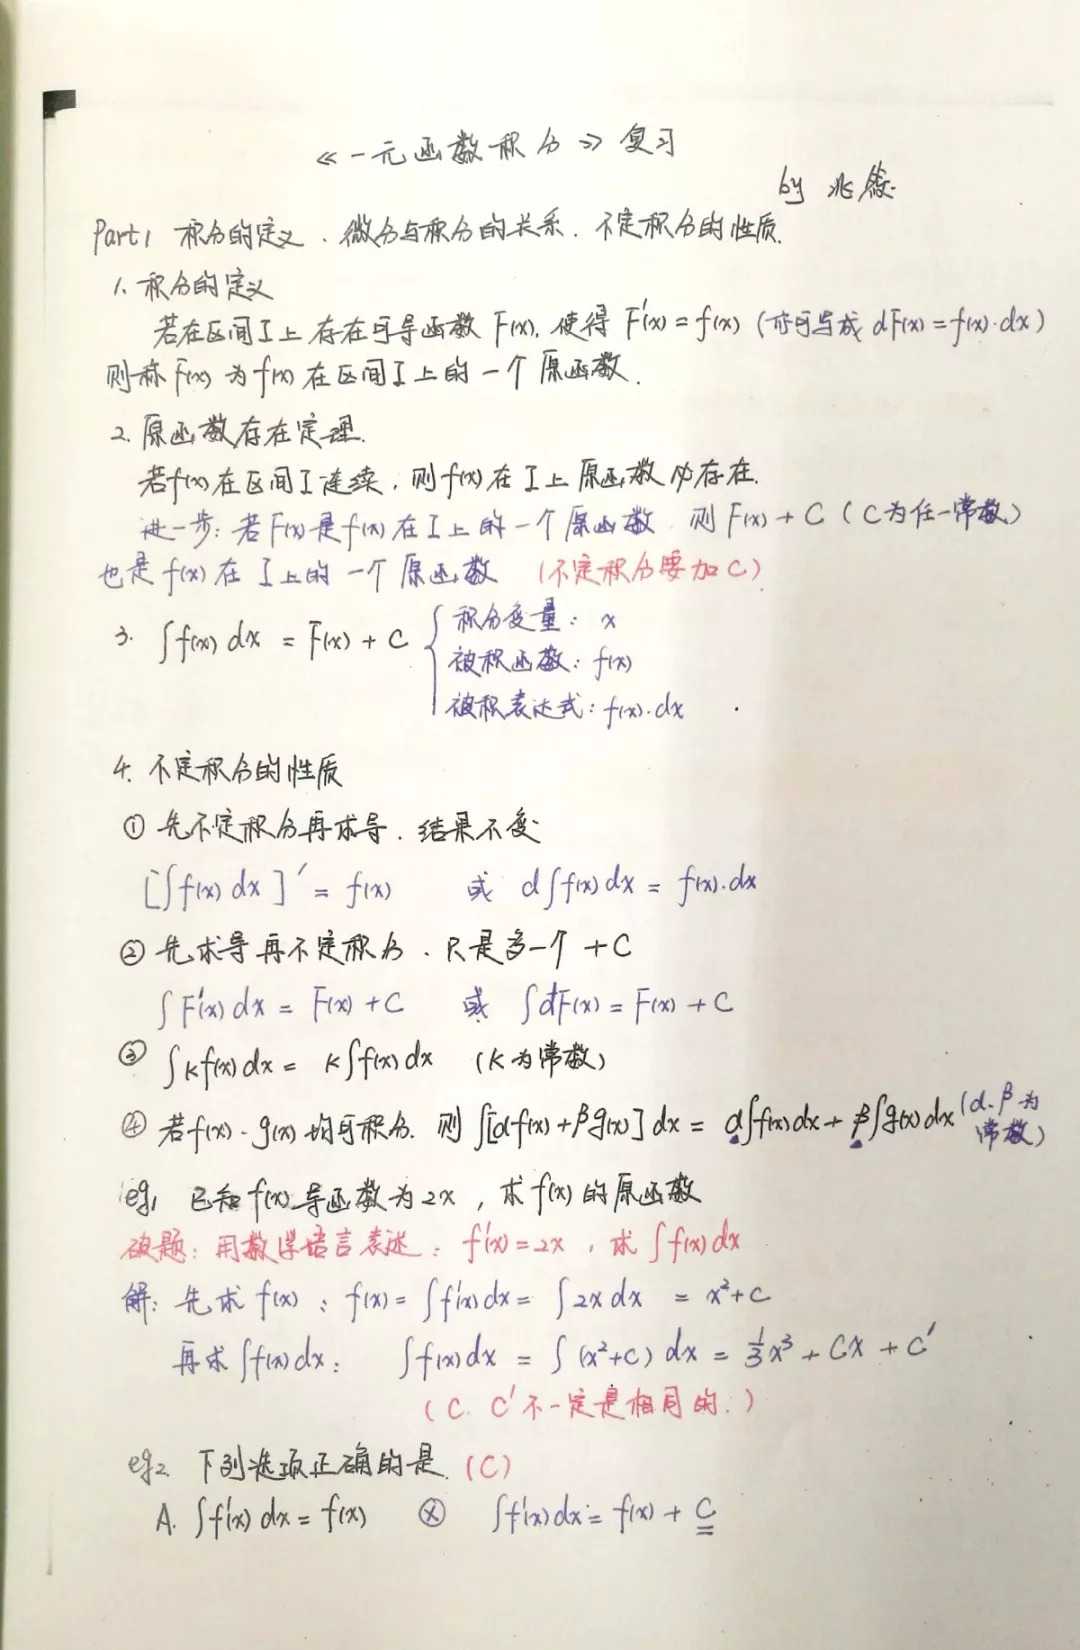 《一元函数积分》复习
by 兆
Part1 积分的定义、微分与积分的关系、不定积分的性质.
1. 积分的定义
若在区间I上存在可导函数F(x), 使得 F'(x) = f(x) (亦可写成 dF(x) = f(x)·dx)
则称F(x) 为f(x) 在区间I上的一个原函数.
2. 原函数存在定理.
若f(x)在区间I连续, 则f(x) 在I上原函数必存在.
进一步: 若F(x)是f(x)在I上的一个原函数, 则F(x) + C (C为任一常数)
也是f(x)在I上的一个原函数 (不定积分要加C)
3. ∫f(x) dx = F(x) + C { 积分变量: x
被积函数: f(x)
被积表达式: f(x)·dx
4. 不定积分的性质
① 先不定积分再求导, 结果不变
[∫f(x) dx]' = f(x) 或 d∫f(x) dx = f(x)·dx
② 先求导再不定积分, 只是多一个 +C
∫F'(x) dx = F(x) + C 或 ∫dF(x) = F(x) + C
③ ∫Kf(x) dx = K∫f(x) dx (K为常数)
④ 若f(x)、g(x) 均可积分, 则∫[αf(x) + βg(x)] dx = α∫f(x)dx + β∫g(x)dx (α、β为常数)
eg1 已知f(x)导函数为2x, 求f(x)的原函数
破题: 用数学语言表述: f'(x) = 2x, 求∫f(x) dx
解: 先求f(x): f(x) = ∫f'(x) dx = ∫2x dx = x²+C
再求∫f(x) dx: ∫f(x) dx = ∫(x²+C) dx = 1/3 x³ + Cx + C'
(C、C'不一定是相同的.)
eg2 下列选项正确的是 (C)
A. ∫f'(x) dx = f(x) ⊗ ∫f'(x) dx = f(x) + C